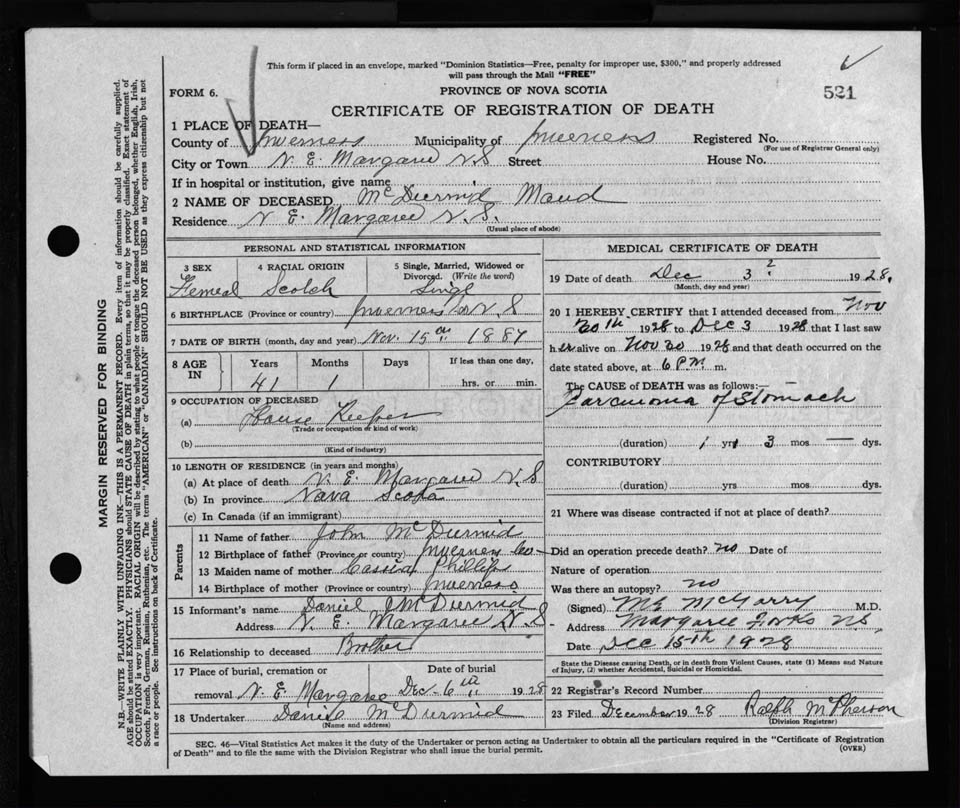 This form if placed in an envelope, marked "Dominion Statistics—Free, penalty for improper use, $300," and properly addressed
will pass through the Mail "FREE"
FORM 6.
PROVINCE OF NOVA SCOTIA
521
CERTIFICATE OF REGISTRATION OF DEATH
1 PLACE OF DEATH—
County of Inverness Municipality of Inverness Registered No.
(For use of Registrar General only)
City or Town N. E. Margaree N.S Street House No.
If in hospital or institution, give name
2 NAME OF DECEASED McDiurmid Maud
Residence N. E. Margaree N. S.
(Usual place of abode)
PERSONAL AND STATISTICAL INFORMATION
3 SEX 4 RACIAL ORIGIN 5 Single, Married, Widowed or
Divorced. (Write the word)
Femeal Scotch Singl
6 BIRTHPLACE (Province or country) Inverness Co N. S
7 DATE OF BIRTH (month, day and year) Nov. 15th 1887
8 AGE IN Years Months Days If less than one day,
41 1 hrs. or min.
9 OCCUPATION OF DECEASED
(a) House Keeper
(Trade or occupation or kind of work)
(b)
(Kind of industry)
10 LENGTH OF RESIDENCE (in years and months)
(a) At place of death N. E. Margaree N. S
(b) In province Nava Scota
(c) In Canada (if an immigrant)
Parents
11 Name of father John McDiurmid
12 Birthplace of father (Province or country) Inverness Co
13 Maiden name of mother Cassie Phillips
14 Birthplace of mother (Province or country) Inverness
15 Informant's name Daniel J McDiurmid
Address N. E. Margaree N. S
16 Relationship to deceased Brother
17 Place of burial, cremation or Date of burial
removal N. E. Margaree Dec- 6th 1928
18 Undertaker Daniel McDiurmid
(Name and address)
MEDICAL CERTIFICATE OF DEATH
19 Date of death Dec 3 ? 1928.
(Month, day and year)
20 I HEREBY CERTIFY that I attended deceased from Nov
20th 1928 to Dec 3 1928 that I last saw
her alive on Nov 30 1928 and that death occurred on the
date stated above, at 6 P.M. m.
The CAUSE of DEATH was as follows:—
Carcinoma of Stomach
(duration) 1 yrs 3 mos — dys.
CONTRIBUTORY
(duration) yrs. mos. dys.
21 Where was disease contracted if not at place of death?
Did an operation precede death? no Date of
Nature of operation
Was there an autopsy? no
(Signed) McGarry M.D.
Address Margaree Forks NS
Date Dec 15th 1928
State the Disease causing Death, or in death from Violent Causes, state (1) Means and Nature
of Injury, (2) whether Accidental, Suicidal or Homicidal.
22 Registrar's Record Number
23 Filed December 1928 Ralph McPherson
(Division Registrar)
SEC. 46—Vital Statistics Act makes it the duty of the Undertaker or person acting as Undertaker to obtain all the particulars required in the "Certificate of Registration
of Death" and to file the same with the Division Registrar who shall issue the burial permit.
(OVER)
MARGIN RESERVED FOR BINDING
N.B.—WRITE PLAINLY WITH UNFADING INK—THIS IS A PERMANENT RECORD. Every item of information should be carefully supplied.
AGE should be stated EXACTLY. PHYSICIANS should STATE CAUSE OF DEATH in plain terms so that it may be properly classified. Exact statement of
OCCUPATION is very important. RACIAL ORIGIN will be described by stating to what people or tongue the deceased person belonged, whether English, Irish,
Scotch, French, German, Russian, Ruthenian, etc. The terms "AMERICAN" or "CANADIAN" SHOULD NOT BE USED as they express citizenship but not
a race or people. See instructions on back of Certificate.